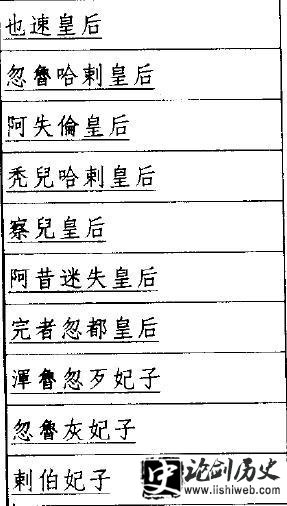 也速皇后
忽魯哈剌皇后
阿失倫皇后
禿兒哈剌皇后
察兒皇后
阿昔迷失皇后
完者忽都皇后
渾魯忽歹妃子
忽魯灰妃子
剌伯妃子
史 论剑历史
www.lishiweb.com